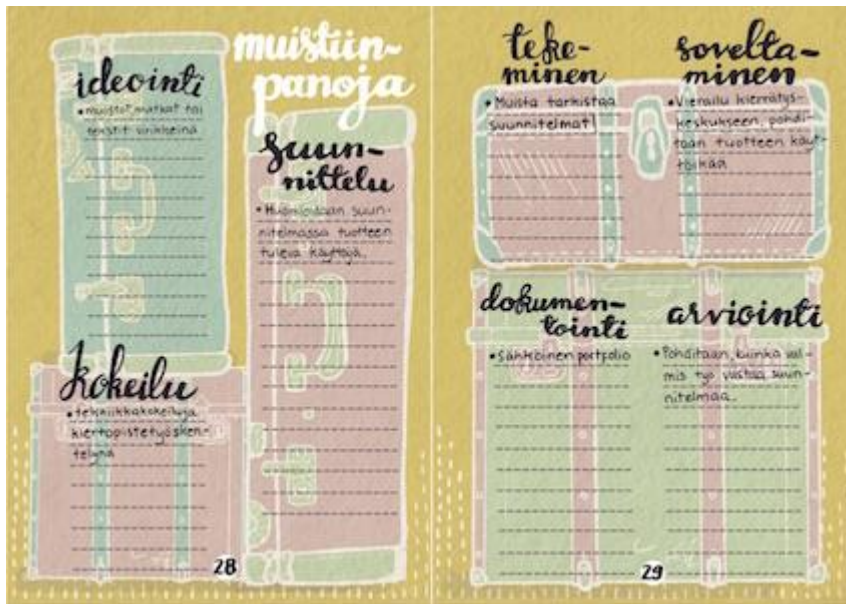 muistiin-
panoja
ideointi
• muistot, matkat tai
tekstit virikkeinä
suun-
nittelu
• Huomioidaan suun-
nitelmassa tuotteen
tuleva käyttäjä.
kokeilu
• tekniikkakokeiluja
kiertopistetyösken-
telynä
28
teke-
minen
• Muista tarkistaa
suunnitelmat!
sovelta-
minen
• Vierailu kierrätys-
keskukseen, pohdi-
taan tuotteen käyt-
töikää
dokumen-
tointi
• Sähköinen portfolio
arviointi
• Pohditaan, kuinka val-
mis työ vastaa suun-
nitelmaa.
29